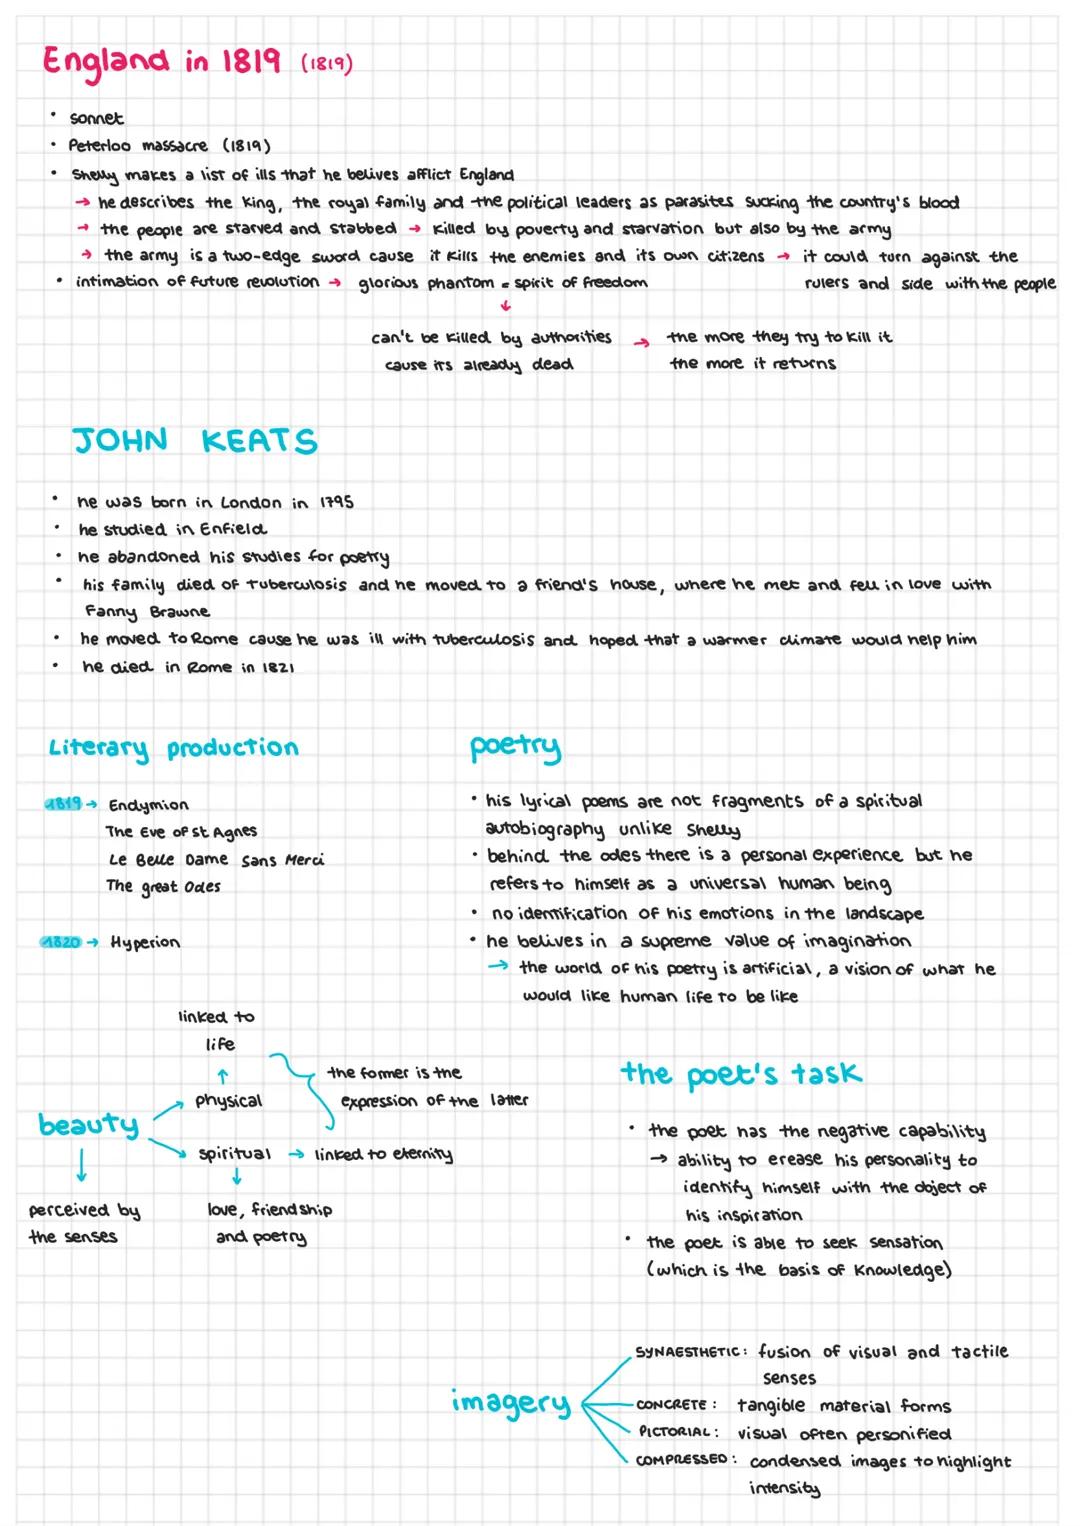 England in 1819 (1819)
• sonnet
• Peterloo massacre (1819)
• Shelly makes a list of ills that he belives afflict England
→ he describes the King, the royal family and the political leaders as parasites sucking the country's blood
→ the people are starved and stabbed → killed by poverty and starvation but also by the army
→ the army is a two-edge sword cause it kills the enemies and its own citizens → it could turn against the
rulers and side with the people
• intimation of future revolution → glorious phantom = spirit of freedom
↓
can't be killed by authorities → the more they try to kill it
cause its already dead the more it returns
JOHN KEATS
• he was born in London in 1795
• he studied in Enfield
• he abandoned his studies for poetry
• his family died of tuberculosis and he moved to a friend's house, where he met and fell in love with
Fanny Brawne
• he moved to Rome cause he was ill with tuberculosis and hoped that a warmer climate would help him
• he died in Rome in 1821
Literary production
1819 → Endymion
The Eve of St Agnes
Le Belle Dame Sans Merci
The great Odes
1820 → Hyperion
poetry
• his lyrical poems are not fragments of a spiritual
autobiography unlike Shelly
• behind the odes there is a personal experience but he
refers to himself as a universal human being
• no identification of his emotions in the landscape
• he belives in a supreme value of imagination
→ the world of his poetry is artificial, a vision of what he
would like human life to be like
linked to
life
↑
physical
the former is the
expression of the latter
beauty
spiritual → linked to eternity
↓
perceived by
the senses
↓
love, friendship
and poetry
the poet's task
• the poet has the negative capability
→ ability to erease his personality to
identify himself with the object of
his inspiration
• the poet is able to seek sensation
(which is the basis of Knowledge)
imagery
SYNAESTHETIC: fusion of visual and tactile
senses
CONCRETE: tangible material forms
PICTORIAL: visual often personified
COMPRESSED: condensed images to highlight
intensity